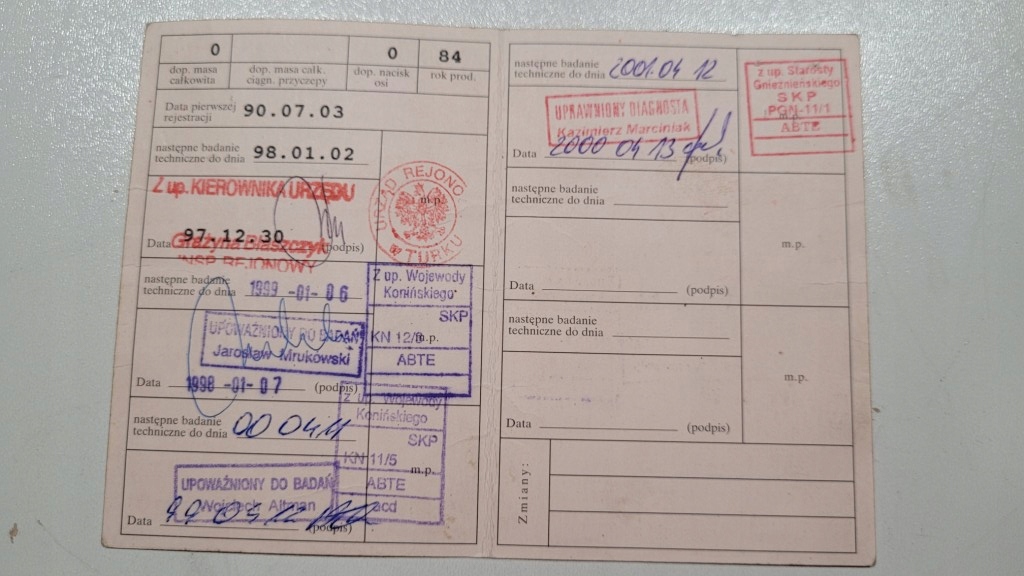 0 0 84
dop. masa całkowita dop. masa całk. ciągn. przyczepy dop. nacisk osi rok prod.
Data pierwszej rejestracji 90.07.03
następne badanie techniczne do dnia 98.01.02
Z up. KIEROWNIKA URZĘDU
Grażyna Błaszczyk
INSP. REJONOWY
Data 97.12.30 (podpis)
URZĄD REJONO
W TURKU
m.p.
następne badanie techniczne do dnia 1999 -01- 06
UPOWAŻNIONY DO BADAŃ
Jarosław Mrukowski
Data 1998 -01- 07 (podpis)
Z up. Wojewody
Konińskiego
SKP
KN 12/9 m.p.
ABTE
następne badanie techniczne do dnia 00 04 11
UPOWAŻNIONY DO BADAŃ
Wojciech Altman
Data 99 04 12 (podpis)
Z up. Wojewody
Konińskiego
SKP
KN 11/5 m.p.
ABTE
acd
następne badanie techniczne do dnia 2001.04 12
UPRAWNIONY DIAGNOSTA
Kazimierz Marciniak
Data 2000 04 13 (podpis)
z up. Starosty
Gnieźnieńskiego
SKP
PGN-11/1
m.p.
ABTE
następne badanie techniczne do dnia
m.p.
Data (podpis)
następne badanie techniczne do dnia
m.p.
Data (podpis)
Zmiany: